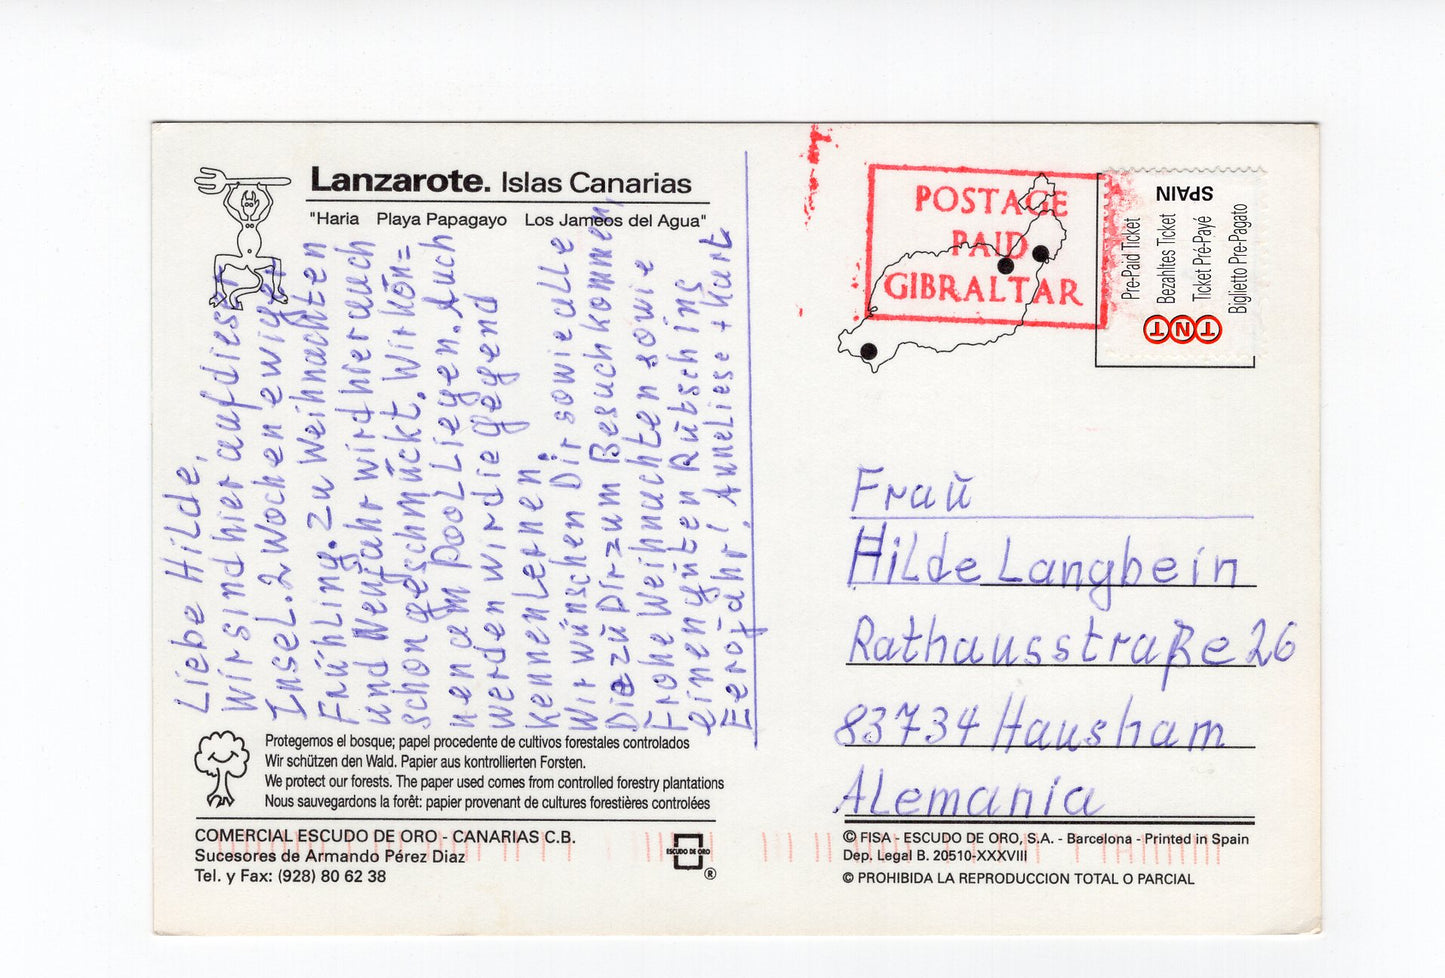 Lanzarote. Islas Canarias
"Haria Playa Papagayo Los Jameos del Agua"
Liebe Hilde,
Wir sind hier auf dieser
Insel. 2 Wochen ewiger
Frühling. Zu Weihnachten
und Neujahr wird hier auch
schon geschmückt. Wir kön=
nen am Pool liegen. Auch
werden wir die Gegend
kennenlernen.
Wir wünschen Dir sowie alle
Die zu Dir zum Besuch kommen,
Frohe Weihnachten sowie
einen guten Rutsch ins
Eurojahr! Anneliese + Kurt
Protegemos el bosque; papel procedente de cultivos forestales controlados
Wir schützen den Wald. Papier aus kontrollierten Forsten.
We protect our forests. The paper used comes from controlled forestry plantations
Nous sauvegardons la forêt: papier provenant de cultures forestières controlées
COMERCIAL ESCUDO DE ORO - CANARIAS C.B.
Sucesores de Armando Pérez Diaz
Tel. y Fax: (928) 80 62 38
ESCUDO DE ORO
®
POSTAGE
PAID
GIBRALTAR
SPAIN
Pre-Paid Ticket
Bezahltes Ticket
Ticket Pré-Payé
Biglietto Pre-Pagato
TNT
Frau
Hilde Langbein
Rathausstraße 26
83734 Hausham
Alemania
© FISA - ESCUDO DE ORO, S.A. - Barcelona - Printed in Spain
Dep. Legal B. 20510-XXXVIII
© PROHIBIDA LA REPRODUCCION TOTAL O PARCIAL